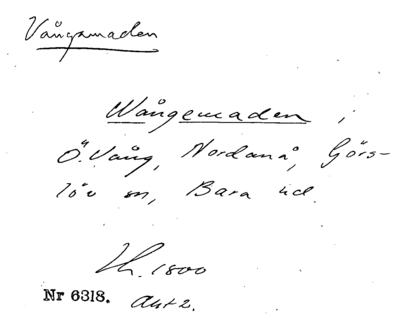 Vångamaden
Wångemaden,
Ö. Vång, Nordanå, Görs-
löv sn, Bara hd.
Lh. 1800
Nr 6318. akt 2.